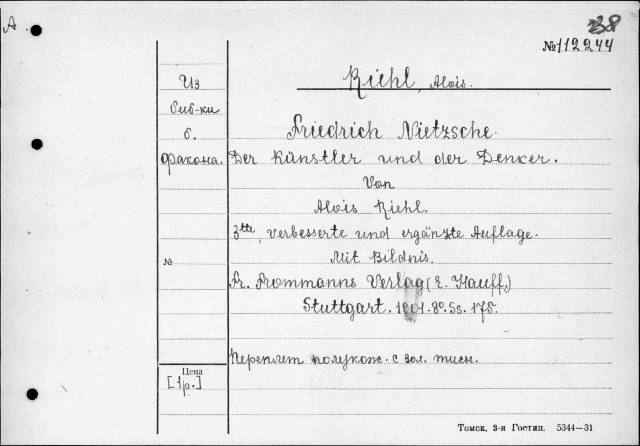 А.
38
№112244
Riehl, Alois.
Из
биб-ки
б.
Фракона.
Friedrich Nietzsche.
Der Künstler und der Denker.
Von
Alois Riehl.
3tte, verbesserte und ergänzte Auflage.
Mit Bildnis.
№
Fr. Frommanns Verlag (E. Hauff.)
Stuttgart. 1901. 8o. Ss.
Переплет полукож. с зол. тисн.
Цена
[1р.]
Томск, 3-я Гостип. 5344—31